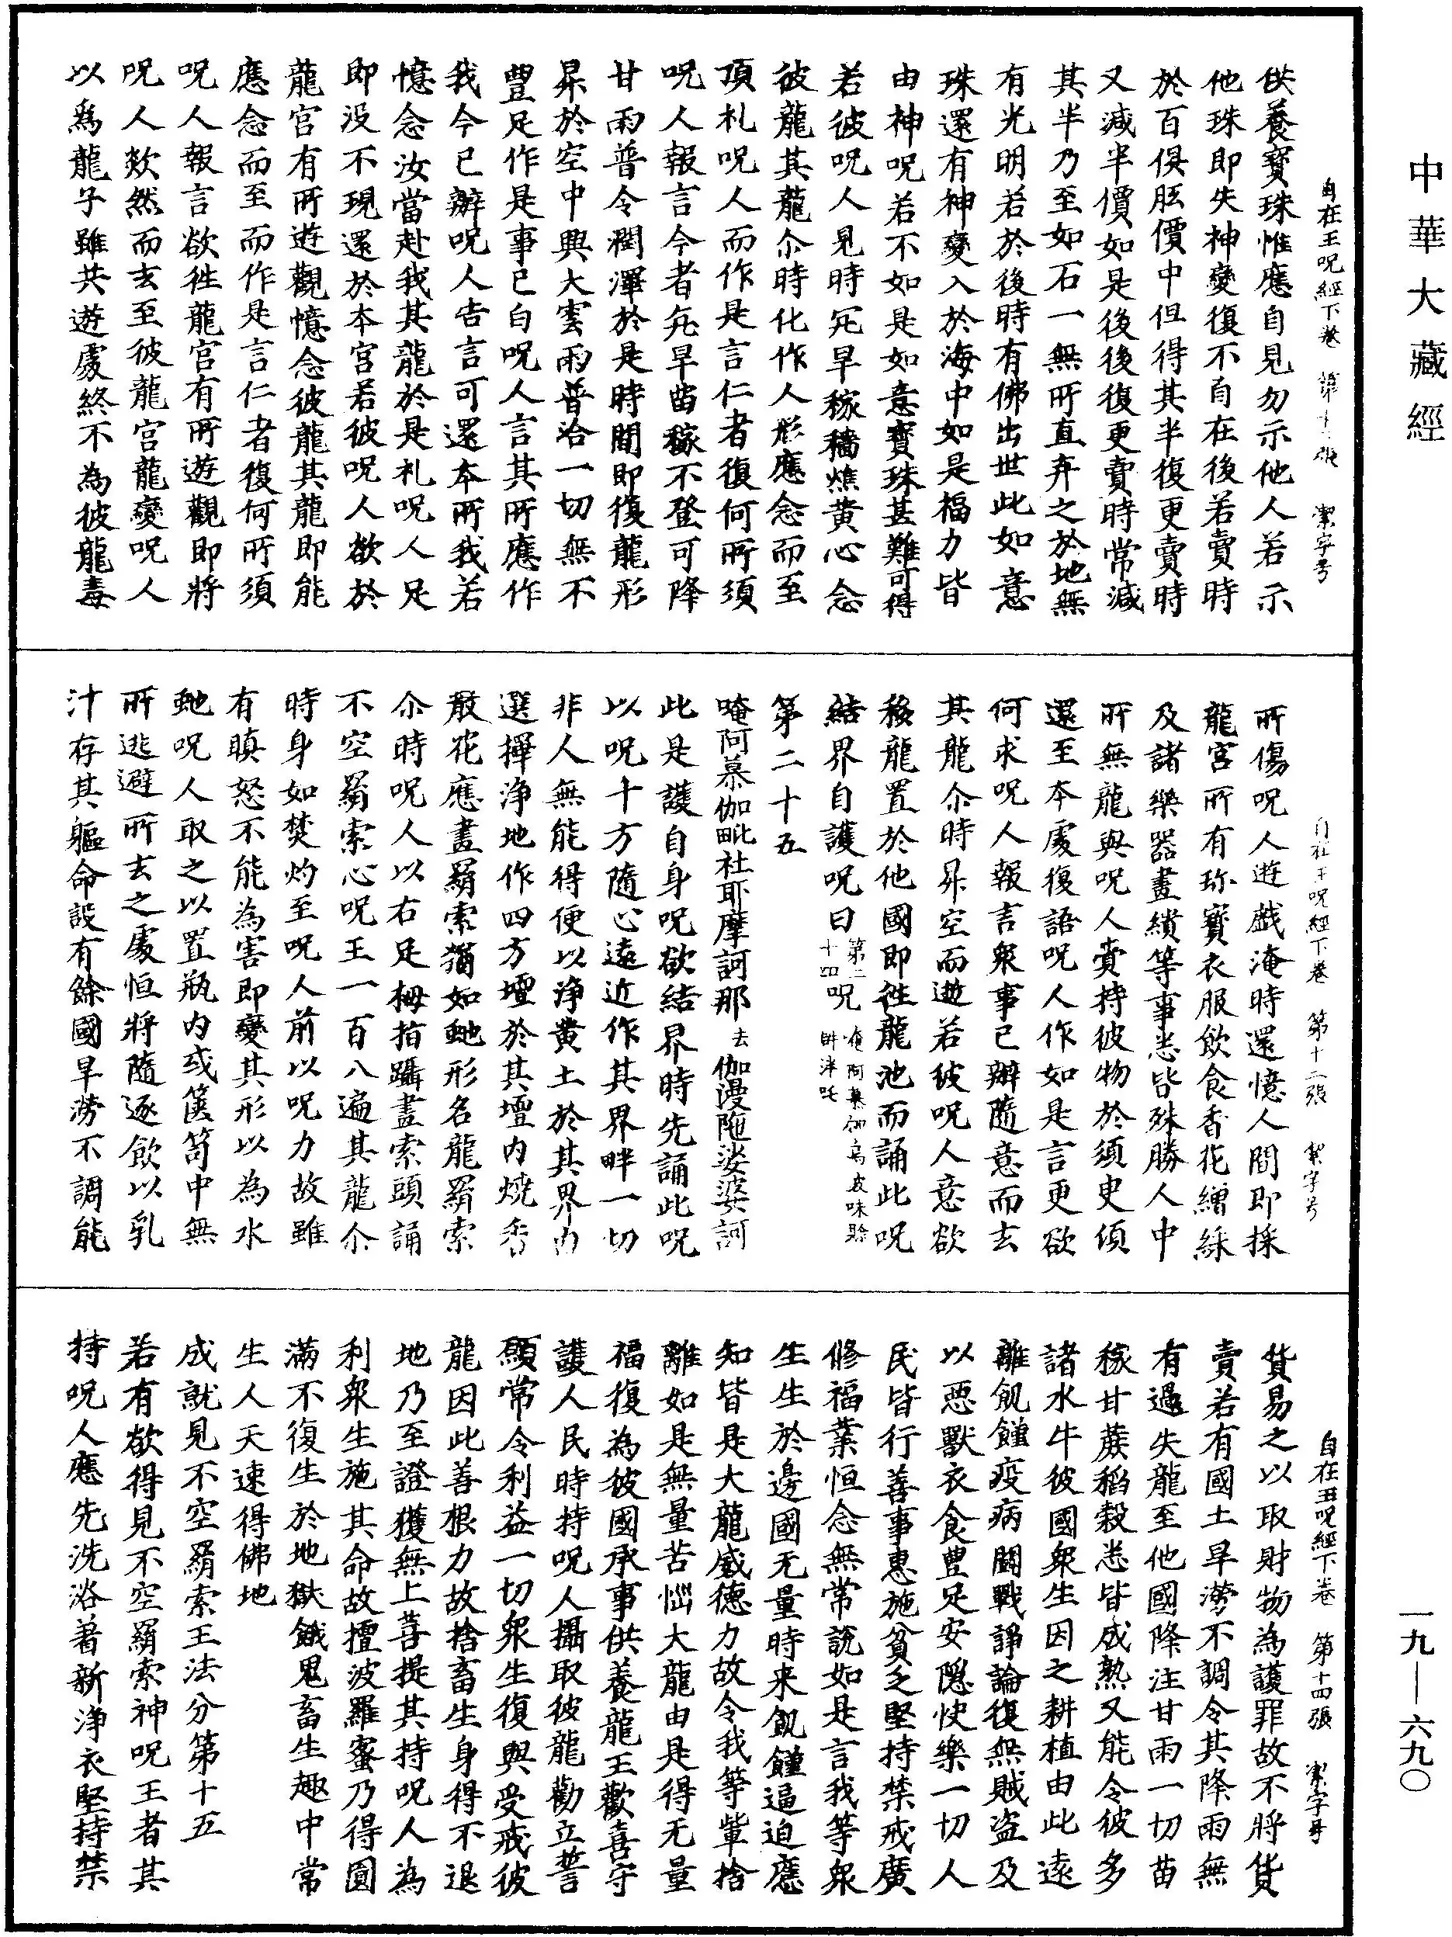 中華大藏經
自在王呪經下卷　第十三張　絜字号
供養寶珠惟應自見勿示他人若示
他珠即失神變復不自在後若賣時
於百俱胝價中但得其半復更賣時
又減半價如是後後復更賣時常減
其半乃至如石一無所直弃之於地無
有光明若於後時有佛出世此如意
珠還有神變入於海中如是福力皆
由神呪若不如是如意寶珠甚難可得
若彼呪人見時亢旱稼穡燋黄心念
彼龍其龍尒時化作人形應念而至
頂礼呪人而作是言仁者復何所須
呪人報言今者亢旱苗稼不登可降
甘雨普令潤澤於是時閒即復龍形
昇於空中興大雲雨普洽一切無不
豐足作是事已白呪人言其所應作
我今已辦呪人告言可還本所我若
憶念汝當赴我其龍於是礼呪人足
即没不現還於本宫若彼呪人欲於
龍宫有所遊觀憶念彼龍其龍即能
應念而至而作是言仁者復何所須
呪人報言欲徃龍宫有所遊觀即將
呪人欻然而去至彼龍宫龍變呪人
以為龍子雖共遊處終不為彼龍毒
自在王呪經下卷　第十三張　絜字号
所傷呪人遊戲淹時還憶人間即採
龍宫所有珎寶衣服飲食香花繒綵
及諸樂器畫繢等事悉皆殊勝人中
所無龍與呪人賫持彼物於須臾頃
還至本處復語呪人作如是言更欲
何求呪人報言衆事已辦隨意而去
其龍尒時昇空而逝若彼呪人意欲
移龍置於他國即徃龍池而誦此呪
結界自護呪曰 第二十四呪
第二十五
唵阿慕伽毗社耶摩訶那去伽漫陁婆婆訶
此是護自身呪欲結界時先誦此呪
以呪十方隨心遠近作其界畔一切
非人無能得便以浄黄土於其界内
選擇浄地作四方壇於其壇内燒香
散花應畫羂索猶如虵形名龍羂索
尒時呪人以右足拇指躡畫索頭誦
不空羂索心呪王一百八遍其龍尒
時身如焚灼至呪人前以呪力故雖
有瞋怒不能為害即變其形以為水
虵呪人取之以置瓶内或篋笥中無
所逃避所去之處恒將隨逐飲以乳
汁存其軀命設有餘國旱澇不調能
自在王呪經下卷　第十四張　絜字号
貨易之以取財物為護罪故不將貨
賣若有國土旱澇不調令其降雨無
有過失龍至他國降注甘雨一切苗
稼甘蔗稻穀悉皆成熟又能令彼多
諸水牛彼國衆生因之耕植由此遠
離飢饉疫病鬪戰諍論復無賊盗及
以惡獸衣食豊足安隱快樂一切人
民皆行善事惠施貧乏堅持禁戒廣
修福業恒念無常説如是言我等衆
生生於邊國无量時来飢饉逼迫應
知皆是大龍威德力故令我等輩捨
離如是無量苦惱大龍由是得无量
福復為彼國承事供養龍王歡喜守
護人民時持呪人攝取彼龍勸立誓
願常令利益一切衆生復與受戒彼
龍因此善根力故捨畜生身得不退
地乃至證獲無上菩提其持呪人為
利衆生施其命故擅波羅蜜乃得圓
滿不復生於地獄餓鬼畜生趣中常
生人天速得佛地
成就見不空羂索王法分第十五
若有欲得見不空羂索神呪王者其
持呪人應先洗浴著新浄衣堅持禁
一九—六九〇